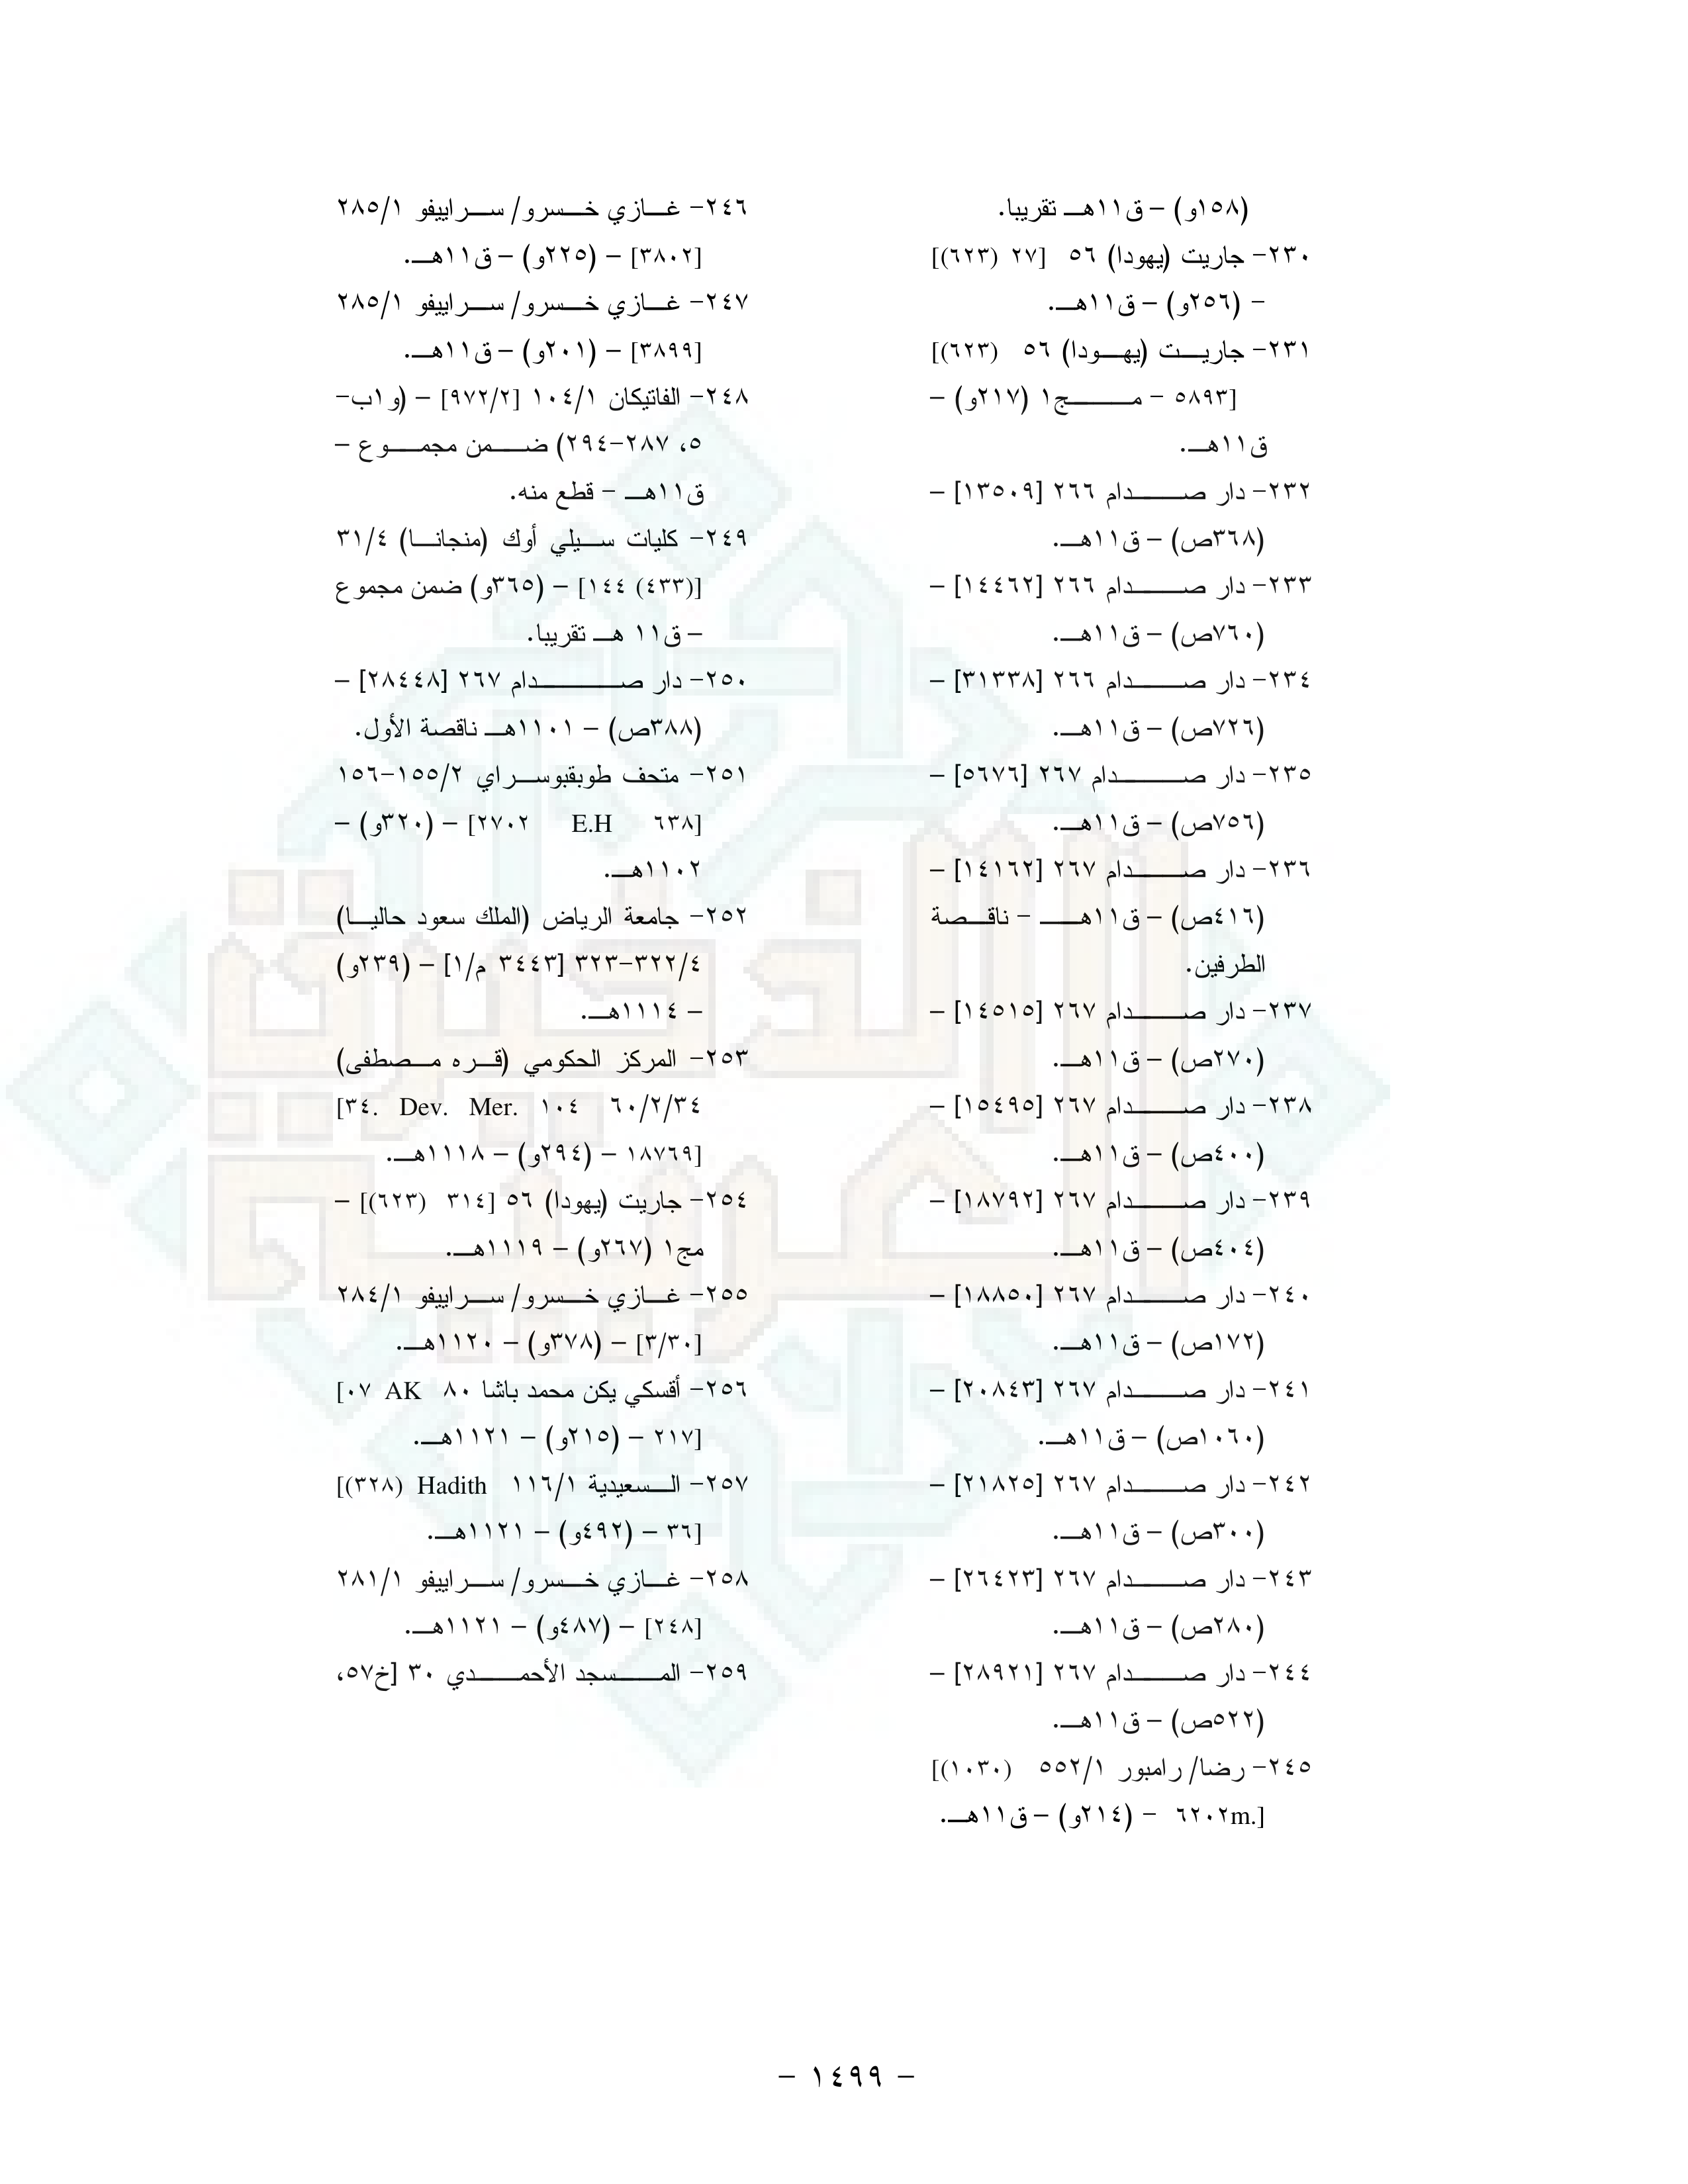 (١٥٨و) – ق١١هـ تقريبا.
٢٣٠– جاريت (يهودا) ٥٦ [٢٧ (٦٢٣)]
– (٢٥٦و) – ق١١هـ.
٢٣١– جاريت (يهودا) ٥٦ [(٦٢٣)
٥٨٩٣] – مج١ (٢١٧و) –
ق١١هـ.
٢٣٢– دار صدام ٢٦٦ [١٣٥٠٩] –
(٣٦٨ص) – ق١١هـ.
٢٣٣– دار صدام ٢٦٦ [١٤٤٦٢] –
(٧٦٠ص) – ق١١هـ.
٢٣٤– دار صدام ٢٦٦ [٣١٣٣٨] –
(٧٢٦ص) – ق١١هـ.
٢٣٥– دار صدام ٢٦٧ [٥٦٧٦] –
(٧٥٦ص) – ق١١هـ.
٢٣٦– دار صدام ٢٦٧ [١٤١٦٢] –
(٤١٦ص) – ق١١هـ – ناقصة
الطرفين.
٢٣٧– دار صدام ٢٦٧ [١٤٥١٥] –
(٢٧٠ص) – ق١١هـ.
٢٣٨– دار صدام ٢٦٧ [١٥٤٩٥] –
(٤٠٠ص) – ق١١هـ.
٢٣٩– دار صدام ٢٦٧ [١٨٧٩٢] –
(٤٠٤ص) – ق١١هـ.
٢٤٠– دار صدام ٢٦٧ [١٨٨٥٠] –
(١٧٢ص) – ق١١هـ.
٢٤١– دار صدام ٢٦٧ [٢٠٨٤٣] –
(١٠٦٠ص) – ق١١هـ.
٢٤٢– دار صدام ٢٦٧ [٢١٨٢٥] –
(٣٠٠ص) – ق١١هـ.
٢٤٣– دار صدام ٢٦٧ [٢٦٤٢٣] –
(٢٨٠ص) – ق١١هـ.
٢٤٤– دار صدام ٢٦٧ [٢٨٩٢١] –
(٥٢٢ص) – ق١١هـ.
٢٤٥– رضا/ رامبور ٥٥٢/١ [(١٠٣٠)
٦٢٠٢m.] – (٢١٤و) – ق١١هـ.
٢٤٦– غازي خسرو/ سراييفو ٢٨٥/١
[٣٨٠٢] – (٢٢٥و) – ق١١هـ.
٢٤٧– غازي خسرو/ سراييفو ٢٨٥/١
[٣٨٩٩] – (٢٠١و) – ق١١هـ.
٢٤٨– الفاتيكان ١٠٤/١ [٩٧٢/٢] – (و١ب–
٥، ٢٨٧–٢٩٤) ضمن مجموع –
ق١١هـ – قطع منه.
٢٤٩– كليات سيلي أوك (منجانا) ٣١/٤
[(٤٣٣) ١٤٤] – (٣٦٥و) ضمن مجموع
– ق١١ هـ تقريبا.
٢٥٠– دار صدام ٢٦٧ [٢٨٤٤٨] –
(٣٨٨ص) – ١١٠١هـ ناقصة الأول.
٢٥١– متحف طوبقبوسراي ١٥٥/٢–١٥٦
[٢٧٠٢ E.H ٦٣٨] – (٣٢٠و) –
١١٠٢هـ.
٢٥٢– جامعة الرياض (الملك سعود حاليا)
٣٢٢/٤–٣٢٣ [٣٤٤٣ م/١] – (٢٣٩و)
– ١١١٤هـ.
٢٥٣– المركز الحكومي (قره مصطفى)
٦٠/٢/٣٤ ١٠٤ [٣٤. Dev. Mer.
١٨٧٦٩] – (٢٩٤و) – ١١١٨هـ.
٢٥٤– جاريت (يهودا) ٥٦ [٣١٤ (٦٢٣)] –
مج١ (٢٦٧و) – ١١١٩هـ.
٢٥٥– غازي خسرو/ سراييفو ٢٨٤/١
[٣/٣٠] – (٣٧٨و) – ١١٢٠هـ.
٢٥٦– أقسكي يكن محمد باشا ٨٠ [٠٧ AK
٢١٧] – (٢١٥و) – ١١٢١هـ.
٢٥٧– السعيدية ١١٦/١ [(٣٢٨) Hadith
٣٦] – (٤٩٢و) – ١١٢١هـ.
٢٥٨– غازي خسرو/ سراييفو ٢٨١/١
[٢٤٨] – (٤٨٧و) – ١١٢١هـ.
٢٥٩– المسجد الأحمدي ٣٠ [خ٥٧،
– ١٤٩٩ –
الذخيرة
العربية